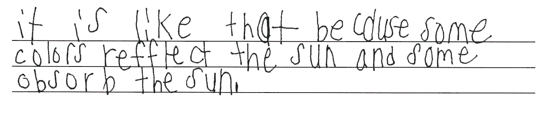 it is like that because some
colors refflect the sun and some
obsorb the sun.